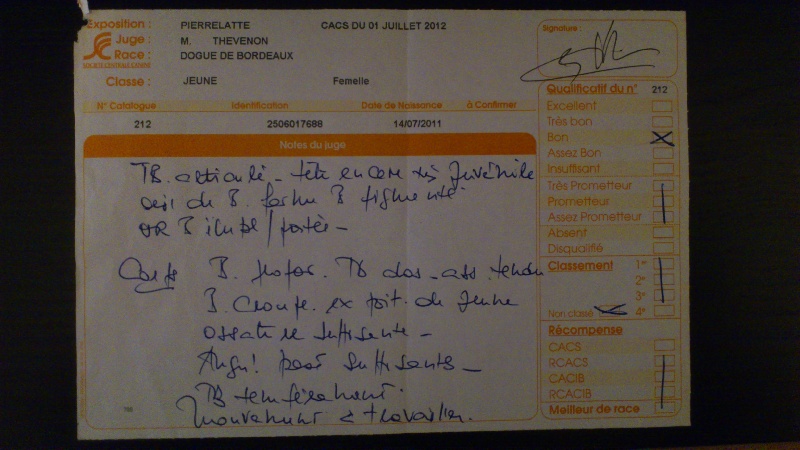 Exposition : PIERRELATTE CACS DU 01 JUILLET 2012
Juge : M. THEVENON
Race : DOGUE DE BORDEAUX
Classe : JEUNE Femelle
N° Catalogue Identification Date de Naissance à Confirmer
212 2506017688 14/07/2011
Notes du juge
TB. articulé - tête encore très Juvénile
œil de B. forme B pigmenté
OR B portée -
Corps B. propor. TB dos - ass. tendu
B. Croupe. ex poit. de Jeune
ossature suffisante -
Angu! post suffisante -
TB tempérament.
Mouvement à travailler.
Signature :
Qualificatif du n° 212
Excellent
Très bon
Bon X
Assez Bon
Insuffisant
Très Prometteur
Prometteur
Assez Prometteur
Absent
Disqualifié
Classement 1er
2e
3e
Non classé 4e
Récompense
CACS
RCACS
CACIB
RCACIB
Meilleur de race